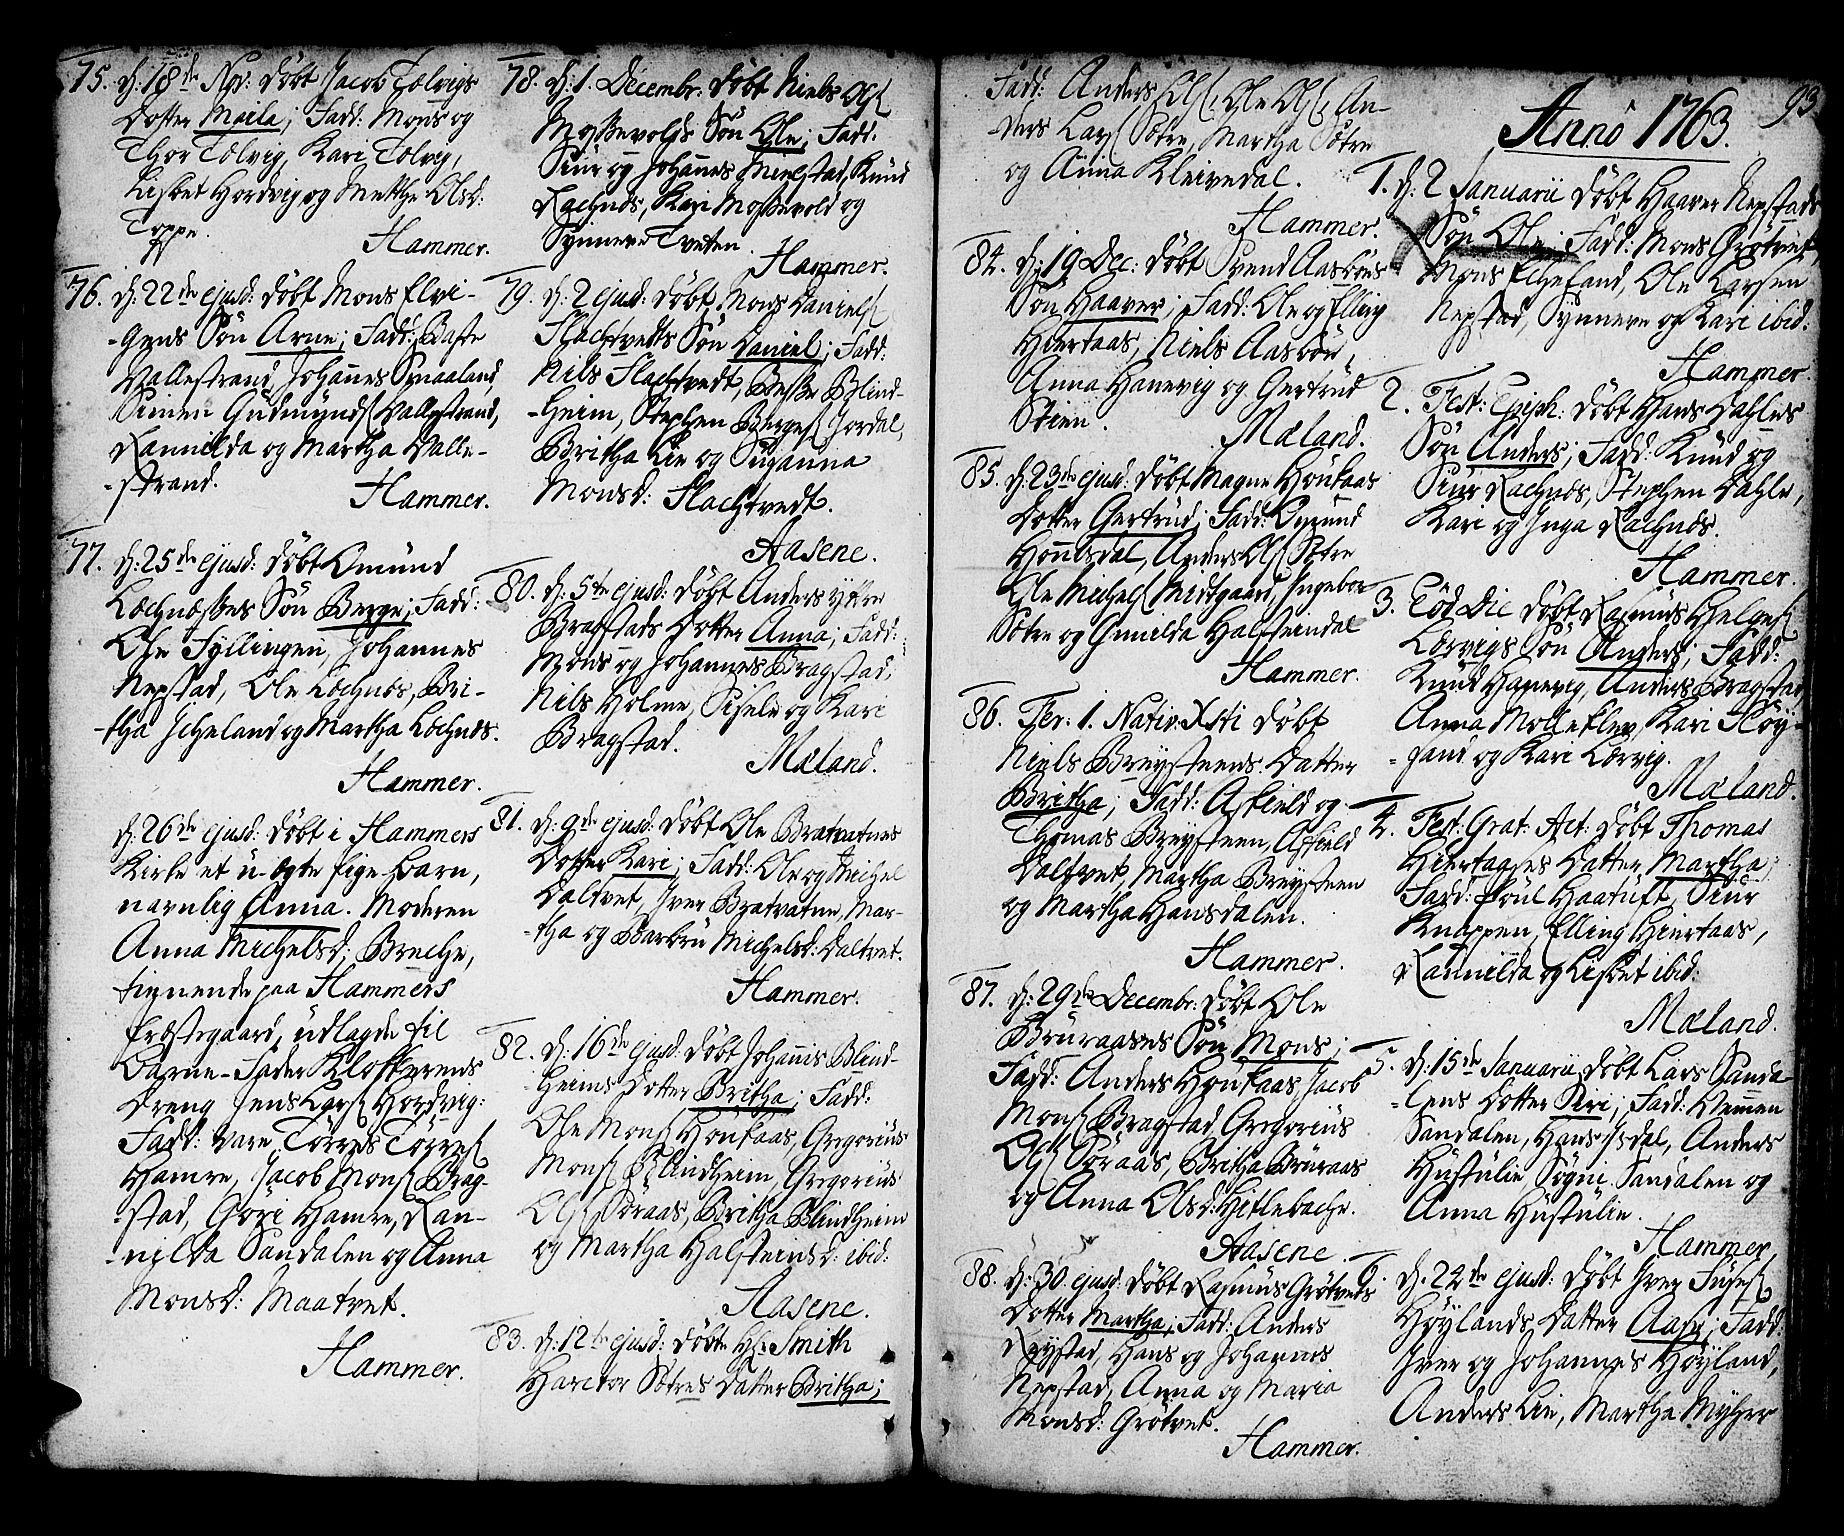 75. d: 18de Nov: döbt Jacob Tælvigs
Dotter Marla; Fadd: Mons og
Thor Tælvig, Kari Tælvig,
Lisbet Hordvig og Mettha Olsd:
Toppe.
Hammer.
76. d: 22de ejusd: döbt Mons Elvi-
-gens Sön Arne; Fadd:
Vallestrand, Johannes Spaaland,
Simen Gudmunds Vallestrand,
Rannilda og Martha Valle-
-strand.
Hammer.
77. d: 25de ejusd: döbt Omund
Lochnæsses Sön Berge; Fadd:
Ole Fyllingen, Johannes
Nepstad, Ole Lochnæs, Bri-
-tha Icheland og Martha Lochnæs.
Hammer.
d: 26de ejusd: döbt i Hammers
Kirke et u-ægte pige barn,
navnlig Anna. Moderen
Anna Michelsd: Breche,
tienende paa Hammers
Præstegaard, udlagde til
Barne-Fader Klokkerens
Dreng Jens Lars Hordvig:
Fadd: vare Törres Törres
Hamre, Jacob Mons Brag-
-stad, Göri Hamre, Ran-
-nilda Sandalen og Anna
Monsd: Maatvet.
Hammer.
78. d: 1. Decembr: döbt Niels Ols
Mossevolds Sön Ole; Fadd:
Siur og Johannes Mielstad, Knud
Rachnæs, Kari Mossevold og
Synneve Tveten.
Hammer.
79. d: 2 ejusd: döbt Mons Daniels
Flachtvedts Sön Daniel; Fadd:
Nils Flachtvedt, Besse Blind-
-heim, Stephen Berges Jordal,
Britha Lie og Susanna
Monsd: Flachtvedt.
Aasene.
80. d: 5te ejusd: döbt Anders Yttre
Bragstads Dotter Anna; Fadd:
Mons og Johannes Bragstad,
Nils Holme, Sisele og Kari
Bragstad.
Mæland.
81. d: 9de ejusd: döbt Ole Bratvatnes
Dotter Kari; Fadd: Ole og Michel
Daltvet, Iver Bratvatne, Mar-
-tha og Barbru Michelsd: Daltvet.
Hammer.
82. d: 16de ejusd: döbt Johannis Blind-
-heims Dotter Britha; Fadd:
Ole Mons Houkaas, Gregorius
Mons Blindheim, Gregorius
Ols Söraas, Britha Blindheim
og Martha Halsteinsd: ibid:
Aasene.
83. d: 12te ejusd: döbte Hr: Smith
Haritor Sötres Datter Britha;
Fadd: Anders Ols, Ole Ols, An-
-ders Lars Sötre, Martha Sötre
og Anna Kleivedal.
Hammer.
84. d: 19 Dec: döbt Svend Aasböes
Sön Haaver; Fadd: Ole og Elling
Hiertaas, Niels Aasböe,
Anna Hanevig og Gertrud
Stien.
Mæland.
85. d: 23de ejusd: döbt Magne Houkaas
Dotter Gertrud; Fadd: Omund
Honnsdal, Anders Ols Sötre
Ole Michels Midtgaard, Ingebor
Sötre og Gunilda Halsteindal
Hammer.
86. Fer: 1. Nativ: Xsti döbt
Niels Breysteens Datter
Britha; Fadd: Askield og
Thomas Breysteen, Askield
Daltvet, Martha Breysteen
og Martha Hansdalen.
Hammer.
87. d: 29de Decembr: döbt Ole
Bruraases Sön Mons;
Fadd: Anders Houkaas, Jacob
Mons Bragstad, Gregorius
Ols Söraas, Britha Bruraas
og Anna Olsd: Hitlebache.
Aasene
88. d: 30 ejusd: döbt Rasmus Grötvets
Dotter Martha; Fadd: Anders
Röystad, Hans og Johannes
Nepstad, Anna og Maria
Monsd: Grötvet.
Hammer.
93.
Anno 1763.
1. d: 2 Januarii döbt Haaver Nepstads
Sön Ole; Fadd: Mons Grötvet,
Mons Icheland, Ole Larsen
Nepstad, Synneve og Kari ibid:
Hammer.
2. Fest: Epiph: döbt Hans Dahles
Sön Anders; Fadd: Knud og
Siur Rachnæs, Stephen Dahle,
Kari og Inga Rachnæs.
Hammer.
3. Eod Die döbt Rasmus Helges
Lærvigs Sön Anders; Fadd:
Knud Hanevig, Anders Bragstad,
Anna Molleklev, Kari Höy-
-land og Kari Lærvig.
Mæland.
4. Fest: Grat: Act: döbt Thomas
Hiertaases Datter Martha;
Fadd: Poul Haatuft, Siur
Knappen, Elling Hiertaas,
Rannilda og Lisbet ibid:
Mæland.
5. d: 15de Januarii döbt Lars Sanda-
-lens Dotter Siri; Fadd: Nemen
Sandalen, Hans Isdal, Anders
Hustulie, Sögni Sandalen og
Anna Hustulie.
Hammer.
6. d. 24de ejusd: döbt Iver Siures
Höylands Datter Aase; Fadd:
Iver og Johannes Höyland,
Anders Lie, Martha Myhre